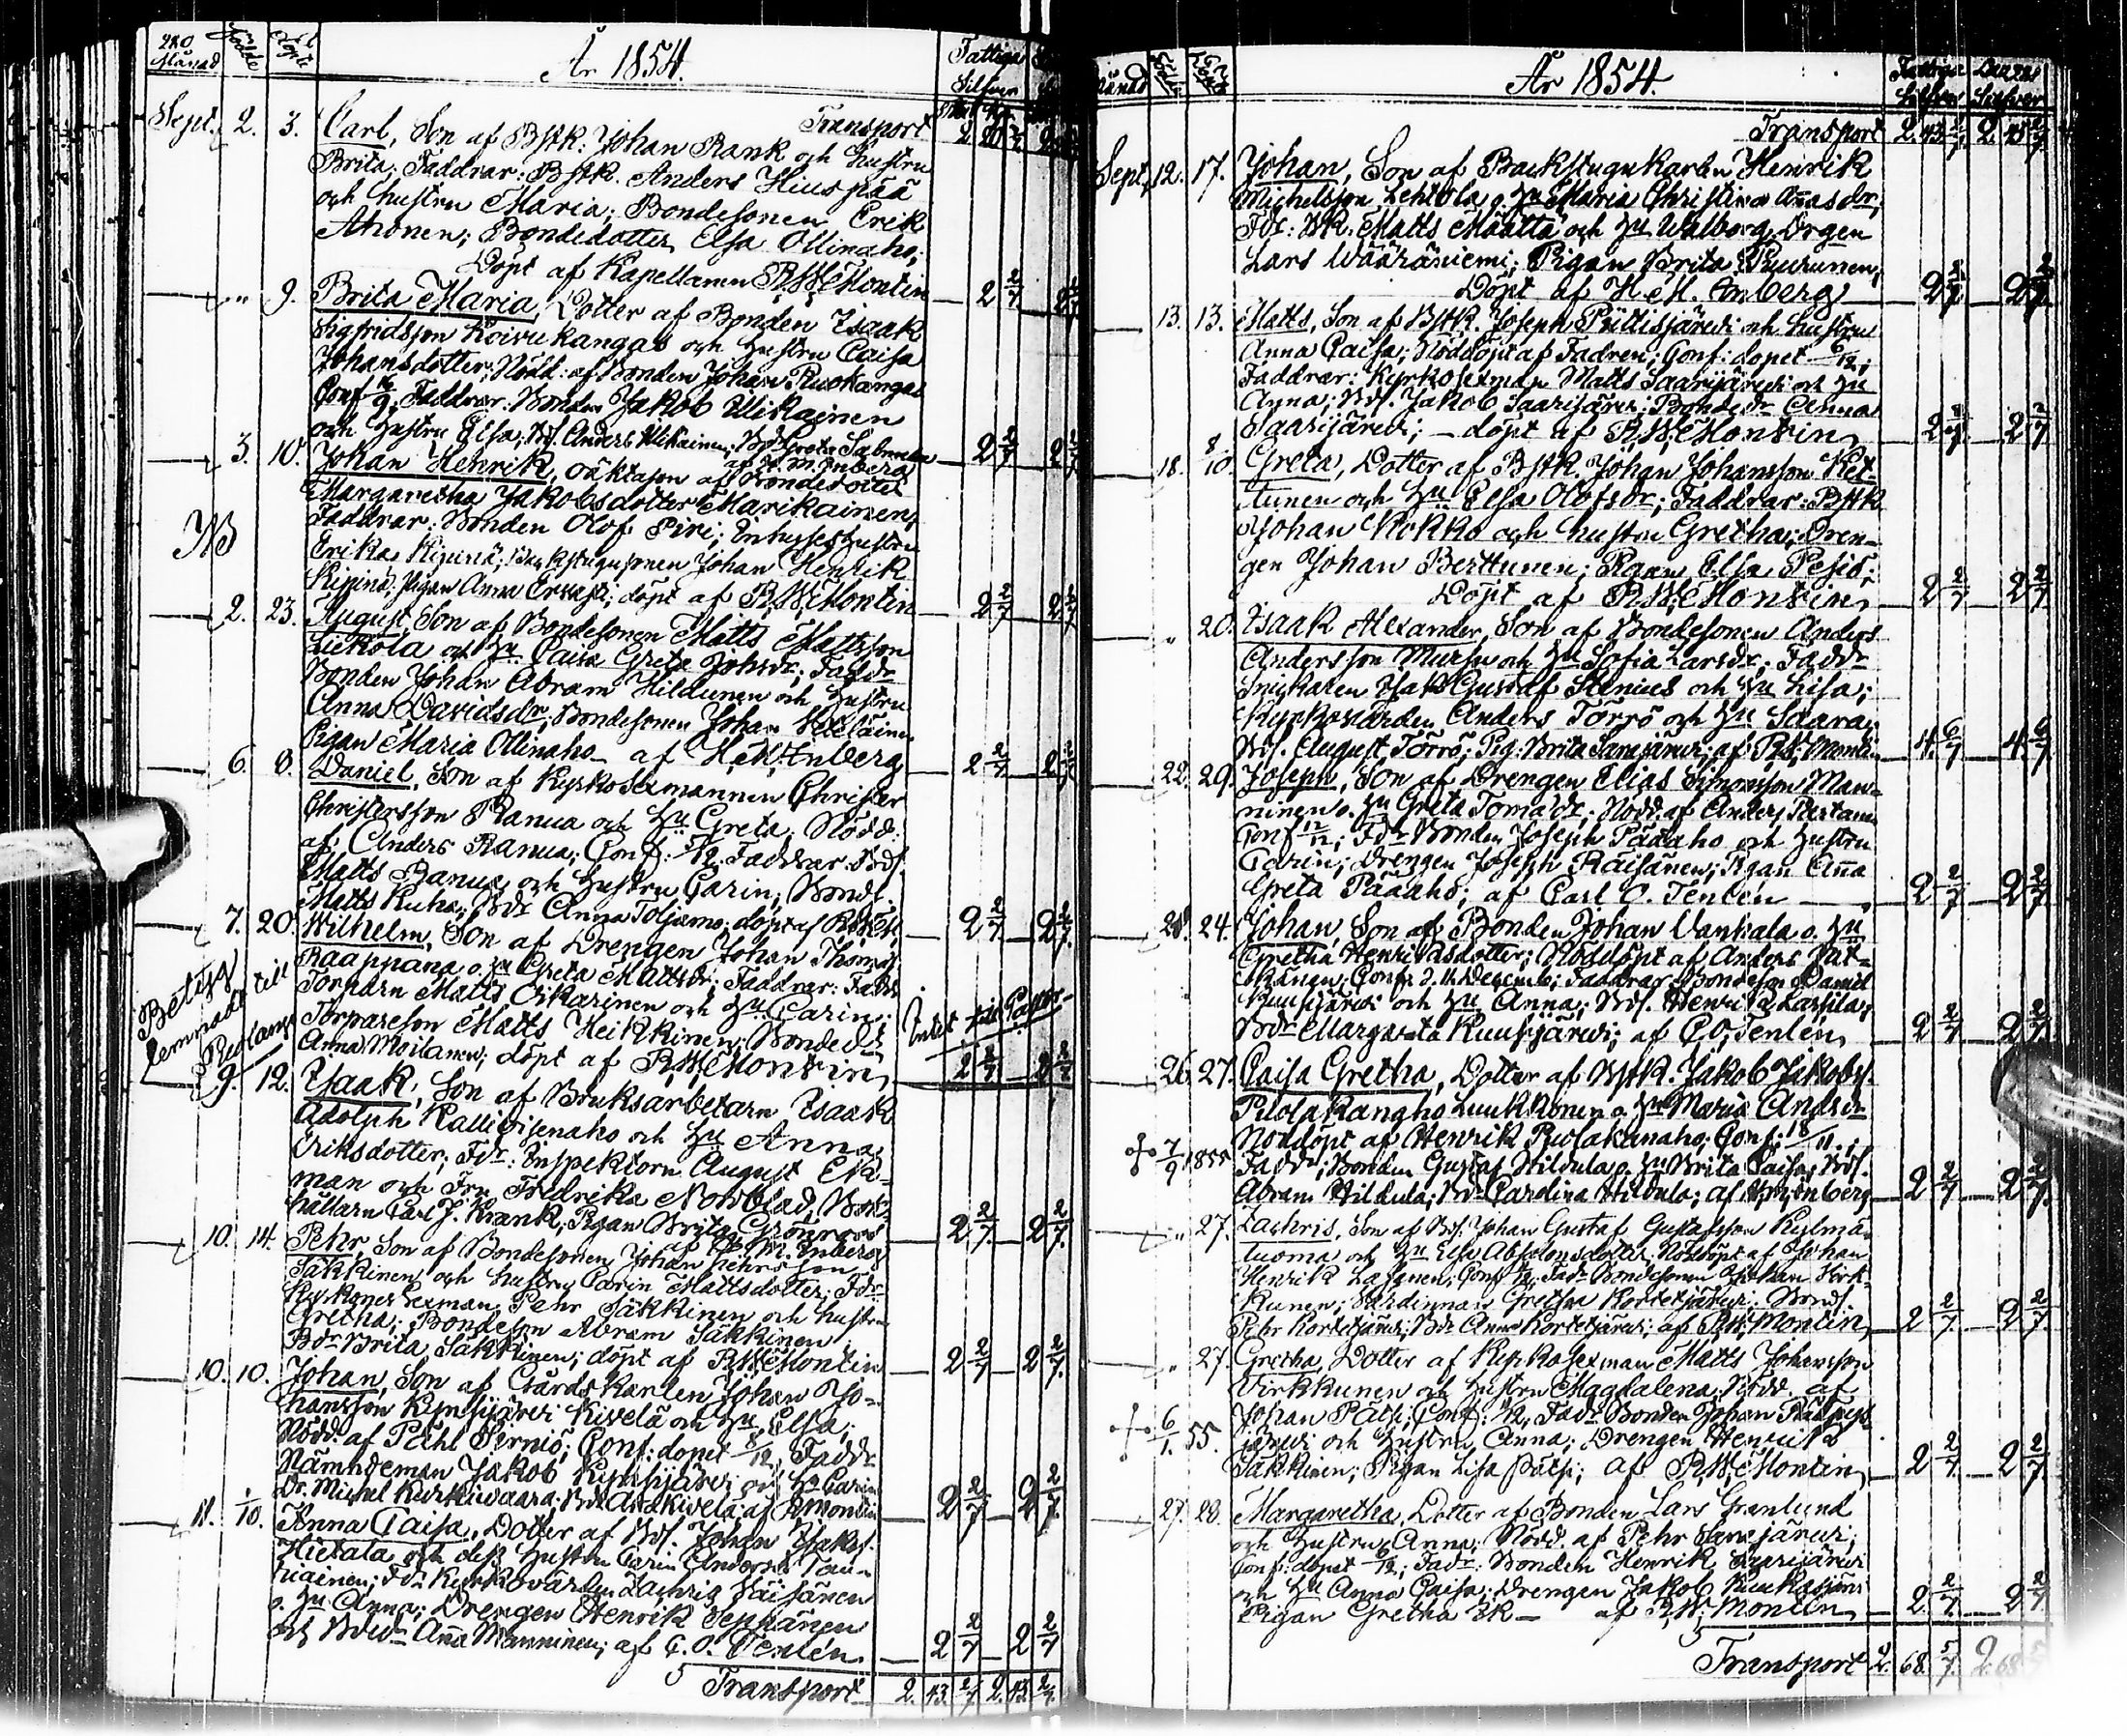 280
Månad Födde Döpte
År 1854.
Fattiga
Silfver
Transport
Sept. 2. 3. Carl, Son af Bstk: Johan Rank och hustru
Brita; Faddrar: Bstk. Anders Hiuspää
och hustru Maria; Bondesonen Erik
Ahonen; Bondedotter Elsa Ollinaho;
Döpt af Kapellanen R.W. Montin 2 2/7 2 2/7
" 9. Brita Maria, Dotter af Bonden Isaak
Sigfridsson Koivukangas och Hustru Caisa
Johansdotter; Nödd: af Bonden Johan Ruokangas
Conf. Faddrar: Bonden Jakob Ulikainen
och Hustru Elsa; Bds. Anders Ulikainen;
af H. M. Enberg 2 2/7 2 2/7
3. 10. Johan Henrik, oäkta son af Bondedotter
Margaretha Jakobsdotter Marikainen;
Faddrar: Bonden Olof Piri; Inhyseshustru
NB
Erika Kipinä; Backstugusonen Johan Henrik
Kipinä; Pigan Anna ; döpt af R.W. Montin 2 2/7 2 2/7
2. 23. August, Son af Bondesonen Matts Mattsson
och Hu Caisa Greta Johsdr; Faddr
Bonden Johan Abram Hildunen och Hustru
Anna Davidsdr; Bondesonen Johan
Pigan Maria Ollinaho af H. M. Enberg 2 2/7 2 2/7
6. 8. Daniel, Son af Kyrkosexmannen Christer
Christersson Ranua och Hu Greta; Nödd:
af Anders Ranua; Conf: Faddrar Bds.
Matts Ranua och Hustru Carin; Bonds.
Matts Kuha; Bdr Anna Toljamo; döpt af 2 2/7 2 2/7
7. 20. Wilhelm, Son af Drengen Johan Thomas.
Raappana o. Hu Greta Mattsdr; Faddrar:
Betyg
lemnadt till
Torparn Matts Oikarinen och Hu Carin;
Torpareson Matts Heikkinen; Bondedr
Anna Moilanen; döpt af R.W. Montin 2 2/7 2 2/7
9. 12. Isaak, Son af Bruksarbetarn Isaak
Adolph och Hu Anna
Eriksdotter; Fdr: Inspektorn August Ek-
man och Fru Fredrika Nordblad; Bok-
hållarn Carl J. Krank; Pigan Brita Grönroos
af H. M. Enberg 2 2/7 2 2/7
10. 14. Pehr, Son af Bondesonen Johan Pehrsson
Säkkinen och hustru Carin Mattsdotter; Fdr
Kyrkones Sexman Pehr Säkkinen och hustru
Gretha; Bondeson Abram Säkkinen
Bdr Brita Säkkinen; döpt af R.W. Montin 2 2/7 2 2/7
10. 10. Johan, Son af Gårdskarlen Johan Jo-
hansson Kynsijärvi Kivelä och Hu Elsa;
Nödd: af Påhl Sirniö; Conf: dopet 8/12; Faddr
Nämndeman Jakob Kynsijärvi och Hu Carin
Dr. Michel Kurkivaara; Bdr Anna Kivelä; af R. Montin 2 2/7 2 2/7
11. 1/10. Anna Caisa, Dotter af Bds. Johan Isaks.
Hietala och dess Hustru Carin Andersdr
Fdr Kyrkovärden Zachris Väisänen
o. Hu Anna; Drengen Henrik Seppänen
och Bdr Anna Manninen; af C. O. Tenlén 2 2/7 2 2/7
Transport 2. 43 2/7 2. 43 2/7
Månad Födde Döpte
År 1854.
Fattiga Lazar.
Silfver Silfver
Transport 2. 43 2/7 2. 43 2/7
Sept. 12. 17. Johan, Son af Backstugukarlen Henrik
Michelsson Lehtola o. Hu Maria Christina Anasdr;
Fdr: Bstk. Matts Määttä och Hu Walborg; Drgen
Lars Wääräniemi; Pigan Brita Puurunen;
Döpt af H. M. Enberg 2 2/7 2 2/7
13. 13. Matts, Son af Bstk. Joseph Piittisjärvi och hustru
Anna Caisa; Nöddöpt af Fadren; Conf: dopet 6/12;
Faddrar: Kyrkosexman Matts Saarijärvi och Hu
Anna; Bds. Jakob Saarijärvi; Bondedr Anna
Saarijärvi; döpt af R.W. Montin 2 2/7 2 2/7
18. 8/10. Greta, Dotter af Bstk. Johan Johansson Ket-
tunen och Hu Elsa Olofsdr; Faddrar: Bstk
Johan Kokko och hustru Gretha; Dren-
gen Johan Berttunen; Pigan Elsa Pesiö;
Döpt af R.W. Montin 2 2/7 2 2/7
" 20. Isaak Alexander, Son af Bondesonen Anders
Andersson Mursu och Hu Sofia Larsdr; Faddr
Snickaren Isak Gustaf Stenius och Hu Lisa;
Kyrkovärden Anders Törrö och Hu Saara;
Bds. August Törrö; Pig: Brita Sarajärvi; af R.W. Montin 4 6/7 4 6/7
22. 29. Joseph, Son af Drengen Elias Simonsson Man-
ninen o. Hu Greta Tomasdr. Nödd. af Anders
Conf 12/12; Fdr Bonden Joseph Pääaho och Hustru
Carin; Drengen Joseph Räisänen; Pigan Anna
Greta Pääaho; af Carl O. Tenlén 2 2/7 2 2/7
23. 24. Johan, Son af Bonden Johan Vanhala o. Hu
Gretha Henriksdotter; Nöddöpt af Anders
Conf: d. 11 Decemb; Faddrar Bondeson Daniel
Kuusijärvi och Hu Anna; Bds. Henrik Lassila;
Bdr Margareta Kuusijärvi; af C.O. Tenlén 2 2/7 2 2/7
26. 27. Caisa Gretha, Dotter af Bstk. Jakob Jakobs.
Puolakangho Luukkonen o. Hu Maria Andsdr
Nöddöpt af Henrik Puolakanaho; Conf: 18/11;
7/9 1855
Faddr; Bonden Gustaf Hildula o. Hu Brita Caisa; Bds.
Abram Hildula; Bdr Carolina Hildula; af H. M. Enberg 2 2/7 2 2/7
" 27. Zachris, Son af Bds. Johan Gustaf Gustafsson Kylmä-
tuoma och Hu Elsa Absalonsdotter; Nöddöpt af Johan
Henrik ; Conf /12; Fadr Bondesonen Johan Kirk-
kunen; Värdinnan Gretha Kortetjärvi; Bonds.
Pehr Kortetjärvi; Bdr Anna Kortetjärvi; af R.W. Montin 2 2/7 2 2/7
" 27. Gretha, Dotter af Kyrkosexman Matts Johansson
Virkkunen och Hustru Magdalena; Nödd. af
6/1 55.
Johan Pätsi; Conf: /12, Fadr Bonden Johan
järvi och Hustru Anna; Drengen Henrik
Säkkinen; Pigan Lisa Pätsi; af R.W. Montin 2 2/7 2 2/7
27. 28. Margaretha, Dotter af Bonden Lars Granlund
och Hustru Anna; Nödd. af Pehr Sarajärvi;
Conf: dopet 6/12; Fadr: Bonden Henrik Sarajärvi
och Hu Anna Caisa; Drengen Jakob
Pigan Gretha Ek af R.W. Montin 2 2/7 2 2/7
Transport 2. 68. 5/7 2. 68 5/7